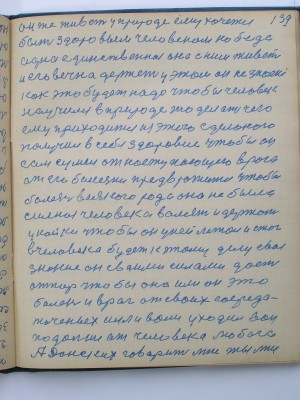 он же живет у природе ему хочется 139
быть здоровым человеком но беда
одна единственная она с ним живет
и его вечно держит у этом он не знает
как это будет надо чтобы человек
научился в природе это делать чего
ему приходится из этого сделаного
получил в себя здоровие чтобы он
сам сумел от наступающего врага
от его болезни предвратится чтобы
болезнь всякого рода она не была
сильна человека валять и держать
у койки чтобы он у ней лежал и стог
в человека будет к этому делу свое
знание он своими силами даст
отпор чтобы она или он это
болезнь и враг от своих сосредо-
точеных сил и воли уходил вон
подальше от человека любого
А Донских говорит мне ты ли